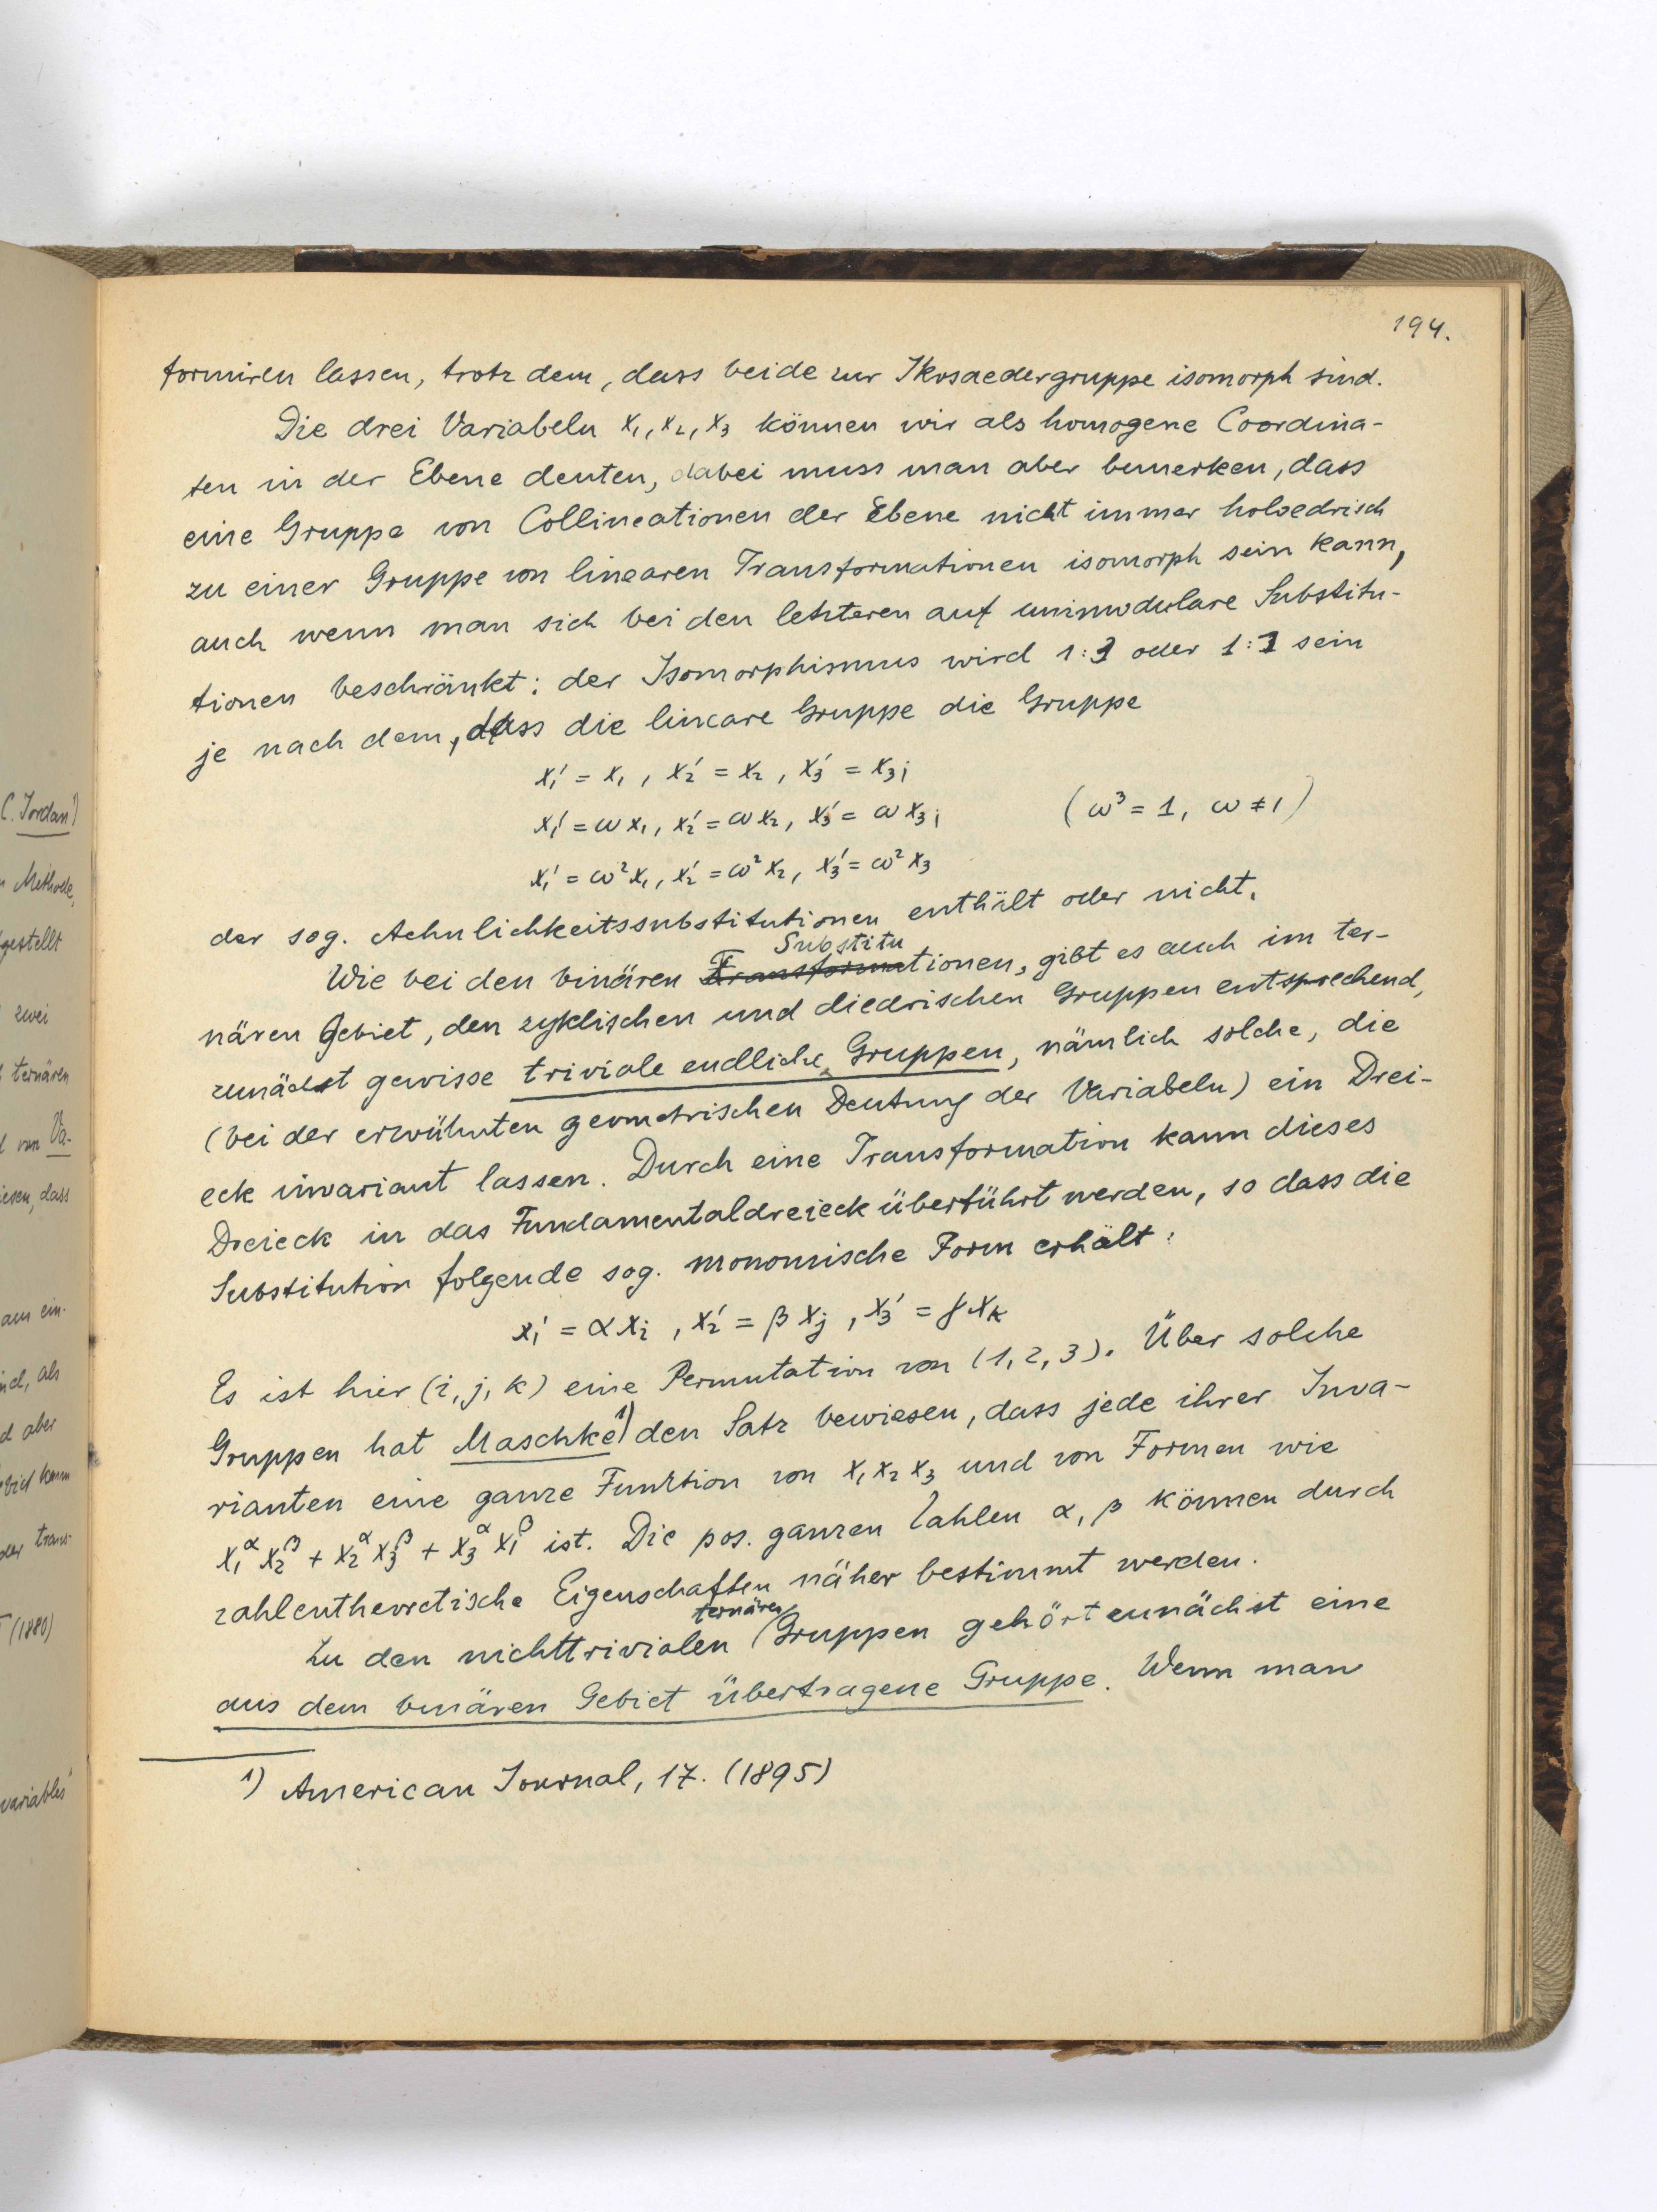 194.
formiren lassen, trotz dem, dass beide zur Ikosaedergruppe isomorph sind.
Die drei Variabeln x₁, x₂, x₃ können wir als homogene Coordina-
ten in der Ebene deuten, dabei muss man aber bemerken, dass
eine Gruppe von Collineationen der Ebene nicht immer holoedrisch
zu einer Gruppe von linearen Transformationen isomorph sein kann,
auch wenn man sich bei den letzteren auf unimodulare Substitu-
tionen beschränkt: der Isomorphismus wird 1:3 oder 1:1 sein
je nach dem, dass die lineare Gruppe die Gruppe
x₁' = x₁, x₂' = x₂, x₃' = x₃;
x₁' = ωx₁, x₂' = ωx₂, x₃' = ωx₃; (ω³ = 1, ω ≠ 1)
x₁' = ω²x₁, x₂' = ω²x₂, x₃' = ω²x₃
der sog. Aehnlichkeitssubstitutionen enthält oder nicht.
Substitu
Wie bei den binären Transformationen, gibt es auch im ter-
nären Gebiet, den zyklischen und diedrischen Gruppen entsprechend,
zunächst gewisse triviale endliche Gruppen, nämlich solche, die
(bei der erwähnten geometrischen Deutung der Variabeln) ein Drei-
eck invariant lassen. Durch eine Transformation kann dieses
Dreieck in das Fundamentaldreieck überführt werden, so dass die
Substitution folgende sog. monomische Form erhält:
x₁' = αxᵢ, x₂' = βxⱼ, x₃' = γxₖ
Es ist hier (i, j, k) eine Permutation von (1, 2, 3). Über solche
Gruppen hat Maschke¹⁾ den Satz bewiesen, dass jede ihrer Inva-
rianten eine ganze Funktion von x₁x₂x₃ und von Formen wie
x₁^α x₂^β + x₂^α x₃^β + x₃^α x₁^β ist. Die pos. ganzen Zahlen α, β können durch
zahlentheoretische Eigenschaften näher bestimmt werden.
ternären
Zu den nichttrivialen Gruppen gehört zunächst eine
aus dem binären Gebiet übertragene Gruppe. Wenn man
1) American Journal, 17. (1895)
C. Jordan¹⁾
Methode,
gestellt
zwei
ternären
von Va-
iesen, dass
am ein-
ind, als
d aber
ebiet kann
der trans-
(1880)
variables"